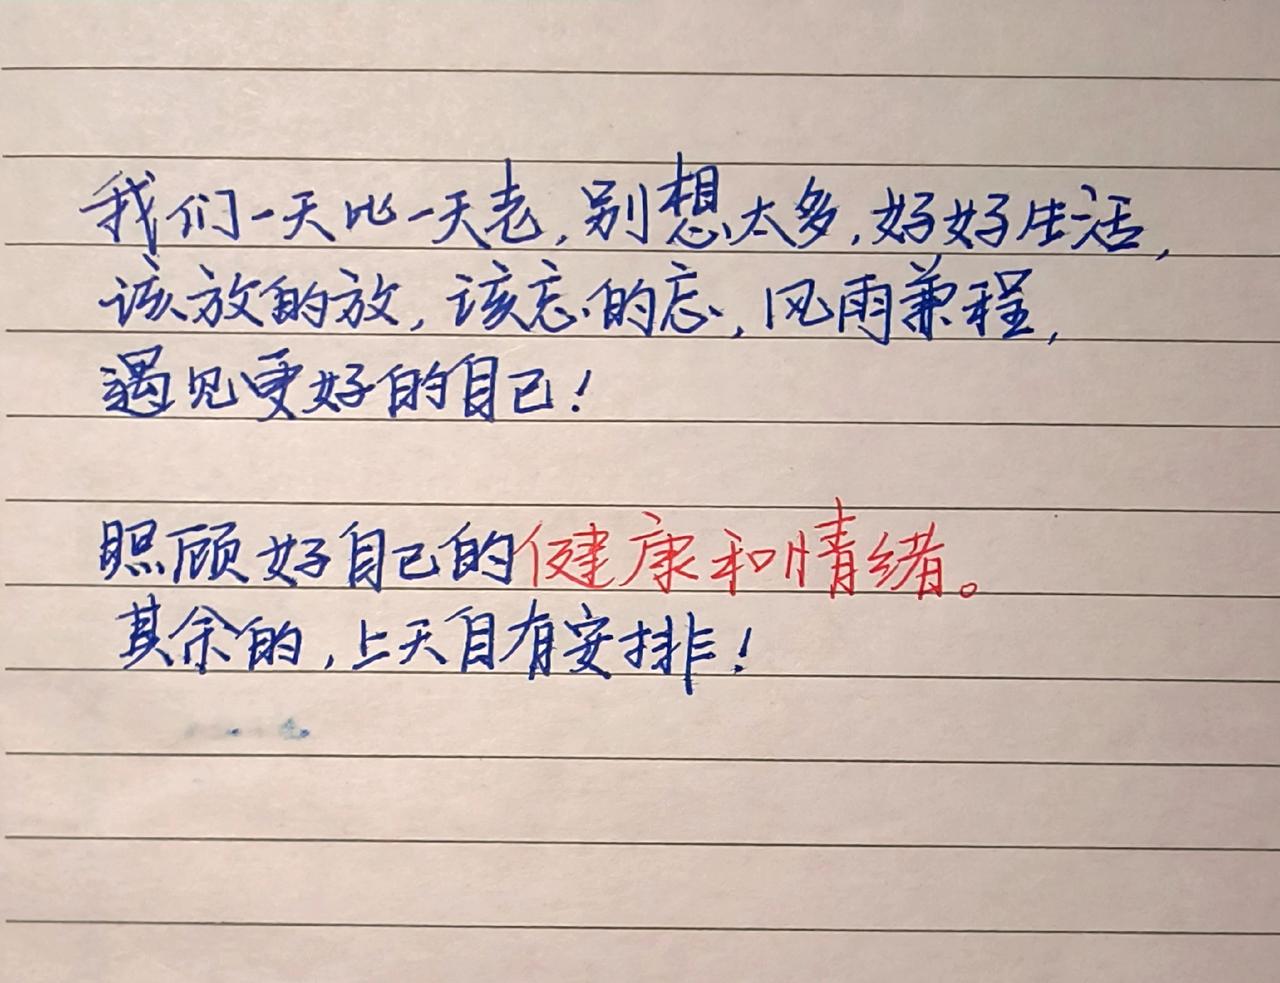 我们一天比一天老,别想太多,好好生活,
该放的放,该忘的忘,风雨兼程,
遇见更好的自己!
照顾好自己的健康和情绪。
其余的,上天自有安排!